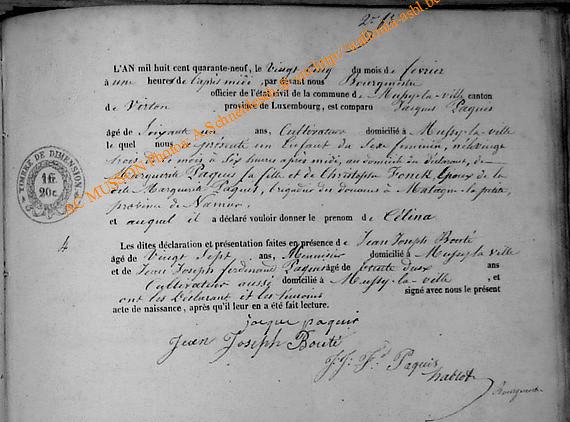 2e fe
L'AN mil huit cent quarante-neuf, le vingt cinq du mois de février
à une heures de l'après midi, par devant nous Bourgmestre
officier de l'état civil de la commune de Mussy-la-ville canton
de Virton province de Luxembourg, est comparu Jacques Paquis
âgé de Soixante un ans, Cultivateur domicilié à Mussy-la-ville
le quel nous a présenté un Enfant du Sexe féminin, né le vingt
trois du mois à Six heures après midi, au domicile du déclarant, de
Marguerite Paquis sa fille et de Christophe Fonck Epoux de la
dite Marguerite Paquis, brigadier des douanes à Matagne-la-petite,
province de Namur,
et auquel il a déclaré vouloir donner le prenom de Célina
TIMBRE DE DIMENSION
1 fr
20c
4
Les dites déclaration et présentation faites en présence de Jean Joseph Bouté
âgé de Vingt Sept ans, Menuisier domicilié à Mussy-la-ville
et de Jean Joseph ferdinand Paquis âgé de trente deux ans
Cultivateur aussi domicilié à Mussy-la-ville, et
ont les Déclarant et les témoins signé avec nous le présent
acte de naissance, après qu'il leur en a été fait lecture.
jacque paquis
Jean Joseph Bouté
J: J: Fd Paquis
hablot
Bourgmestre
AC MUSSON Photos A.Schneider